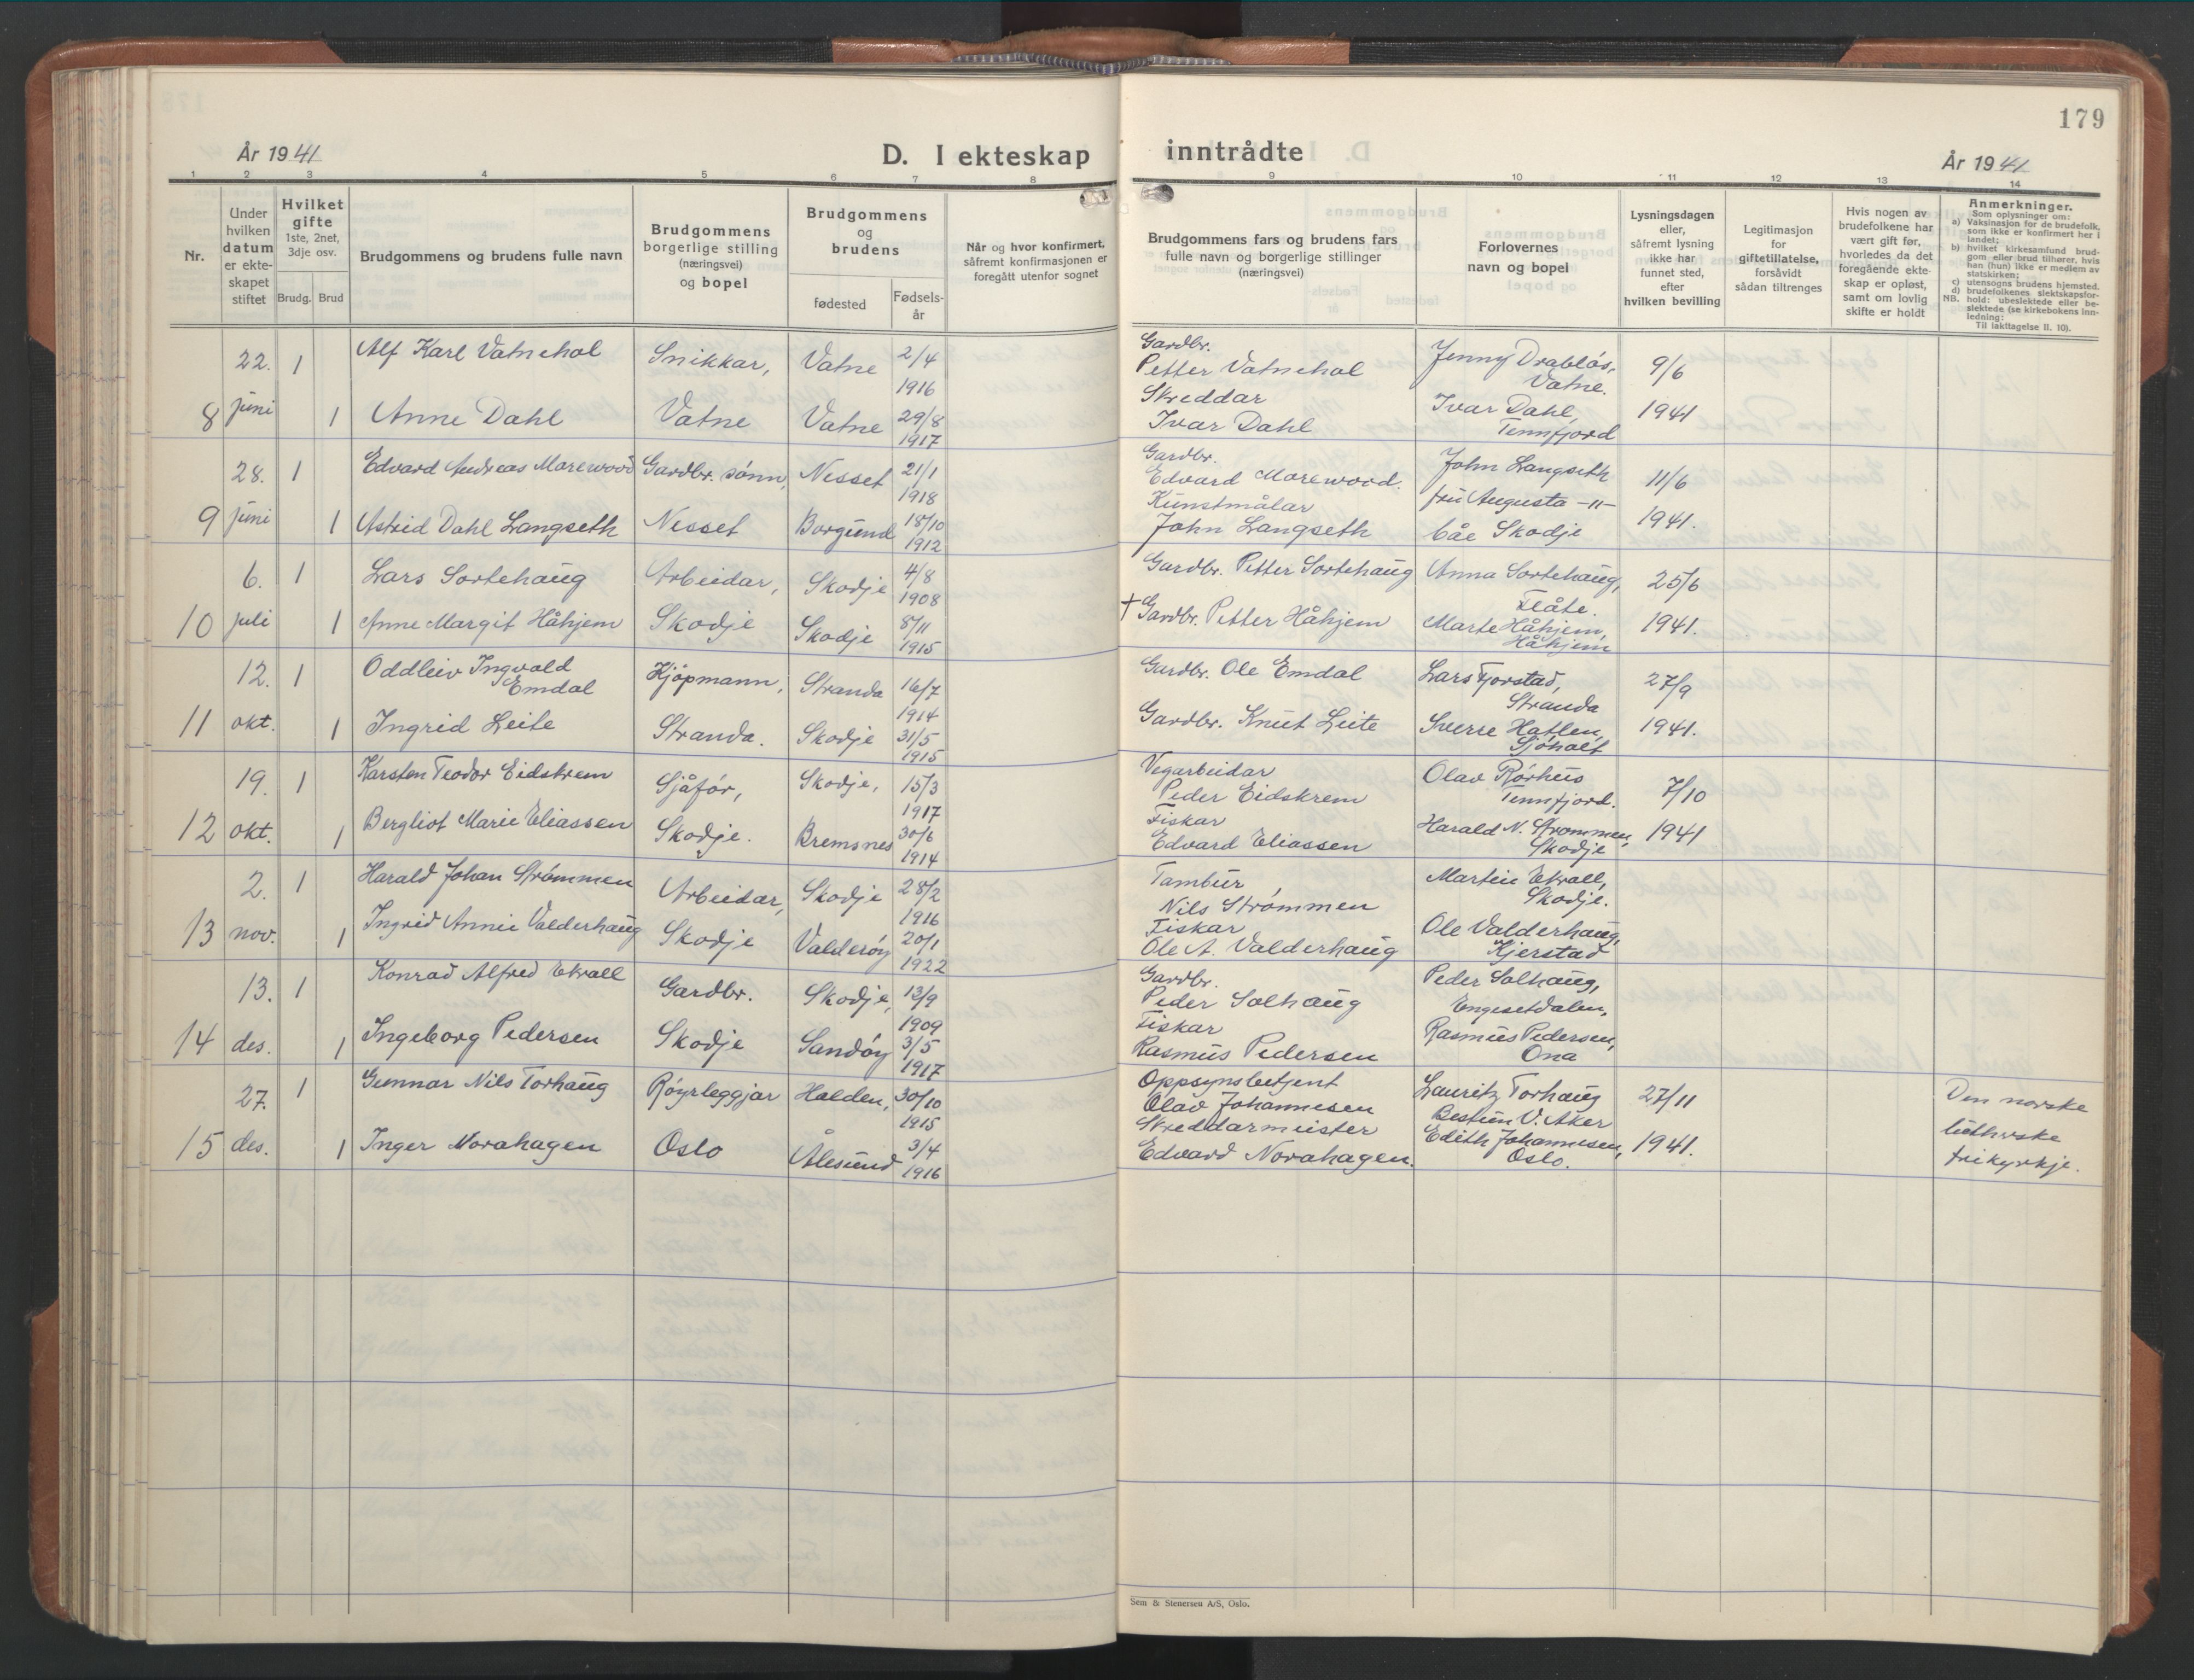 179
År 1941
D. I ekteskap inntrådte
År 1941
1 2 3 4 5 6 7 8 9 10 11 12 13 14
Nr.
Under hvilken datum er ekte-skapet stiftet
Hvilket gifte
1ste, 2net, 3dje osv.
Brudg. Brud
Brudgommens og brudens fulle navn
Brudgommens borgerlige stilling (næringsvei) og bopel
Brudgommens og brudens
fødested
Fødsels-år
Når og hvor konfirmert, såfremt konfirmasjonen er foregått utenfor sognet
Brudgommens fars og brudens fars fulle navn og borgerlige stillinger (næringsvei)
Forlovernes navn og bopel
Lysningsdagen eller, såfremt lysning ikke har funnet sted, efter hvilken bevilling
Legitimasjon for giftetillatelse, forsåvidt sådan tiltrenges
Hvis nogen av brudefolkene har vært gift før, hvorledes da det foregående ekte-skap er opløst, samt om lovlig skifte er holdt
Anmerkninger.
Som oplysninger om:
a) Vaksinasjon for de brudefolk, som ikke er konfirmert her i landet;
b) hvilket kirkesamfund brud-gom eller brud tilhører, hvis han (hun) ikke er medlem av statskirken;
c) utensogns brudens hjemsted.
d) brudefolkenes slektskapsfor-hold: ubeslektede eller be-slektede (se kirkebokens inn-ledning:
NB. Til iakttagelse II. 10).
22. 1 Alf Karl Vatnehol Snikkar, Vatne 2/4 1916 Gardbr. Petter Vatnehol Jenny Drabløs, Vatne. 9/6
8 juni 1 Anne Dahl Vatne Vatne 29/8 1917 Skreddar Ivar Dahl Ivar Dahl, Tennfjord 1941
28. 1 Edvard Andreas Morewood Gardbr. sønn, Nesset 21/1 1918 Gardbr. Edvard Morewood. John Langseth 11/6
9 juni 1 Astrid Dahl Langseth Nesset Borgund 18/10 1912 Kunstmålar John Langseth fru Augusta -"- båe Skodje 1941.
6. 1 Lars Sortehaug Arbeidar, Skodje 4/8 1908 Gardbr. Petter Sortehaug Anna Sortehaug, Flåte. 25/6
10 juli 1 Anne Margit Håhjem Skodje Skodje 8/11 1915 † Gardbr. Petter Håhjem Marte Håhjem, Håhjem 1941.
12. 1 Oddleiv Ingvald Emdal Kjøpmann, Stranda 16/7 1914 Gardbr. Ole Emdal Lars Fjorstad, Stranda 27/9
11 okt. 1 Ingrid Leite Stranda. Skodje 31/5 1915 Gardbr. Knut Leite Sverre Hatlen, Sjøholt 1941.
19. 1 Karsten Teodor Eidskrem Sjåfør, Skodje, 15/3 1917 Vegarbeidar Peder Eidskrem Olav Rørhus Tennfjord. 7/10
12 okt. 1 Bergliot Marie Eliassen Skodje. Bremsnes 30/6 1914 Fiskar Edvard Eliassen Harald N. Strømmen, Skodje 1941
2. 1 Harald Johan Strømmen Arbeidar, Skodje 28/2 1916 Tambur, Nils Strømmen Martin Ekroll, Skodje.
13 nov. 1 Ingrid Annie Valderhaug Skodje Valderøy 20/1 1922 Fiskar Ole A. Valderhaug Ole Valderhaug, Kjerstad
13. 1 Konrad Alfred Ekroll Gardbr. Skodje, 13/9 1909 Gardbr. Peder Solhaug Peder Solhaug, Engesetdalen,
14 des. 1 Ingeborg Pedersen Skodje Sandøy 3/5 1917 Fiskar Rasmus Pedersen Rasmus Pedersen, Ona
27. 1 Gunnar Nils Torhaug Røyrleggjar Halden, 30/10 1915 Oppsynsbetjent Olav Johannesen Lauritz Torhaug Bestum V. Aker 27/11 Den norske
15 des. 1 Inger Norahagen Oslo Ålesund 3/4 1916 Skreddarmeister Edvard Norahagen. Edith Johannesen, Oslo. 1941. lutherske frikyrkje.
Sem & Stenersen A/S, Oslo.